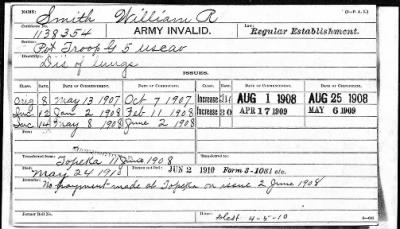 NAME: Smith William R (3—P. A. I.)
Certificate No.
1138354 ARMY INVALID. Law: Regular Establishment.
Service:
Pvt Troop G 5 US Cav
Disability:
Dis of lungs
ISSUES.
CLASS. RATE. DATE OF COMMENCEMENT. DATE OF CERTIFICATE. CLASS. RATE. DATE OF COMMENCEMENT. DATE OF CERTIFICATE.
Orig 8 May 13 1907 Oct 7 1907 Increase AUG 1 1908 AUG 25 1908
Inc 12 Jan 2 1908 Feb 11 1908 Increase APR 17 1909 MAY 6 1909
Inc 14 May 8 1908 June 2 1908
Transferred from
Topeka 11 June 1908
Died
May 24 1910 JUN 2 1910 Form 3-1081 etc.
No payment made at Topeka on issue 2 June 1908
Former Roll No. 4-5-10